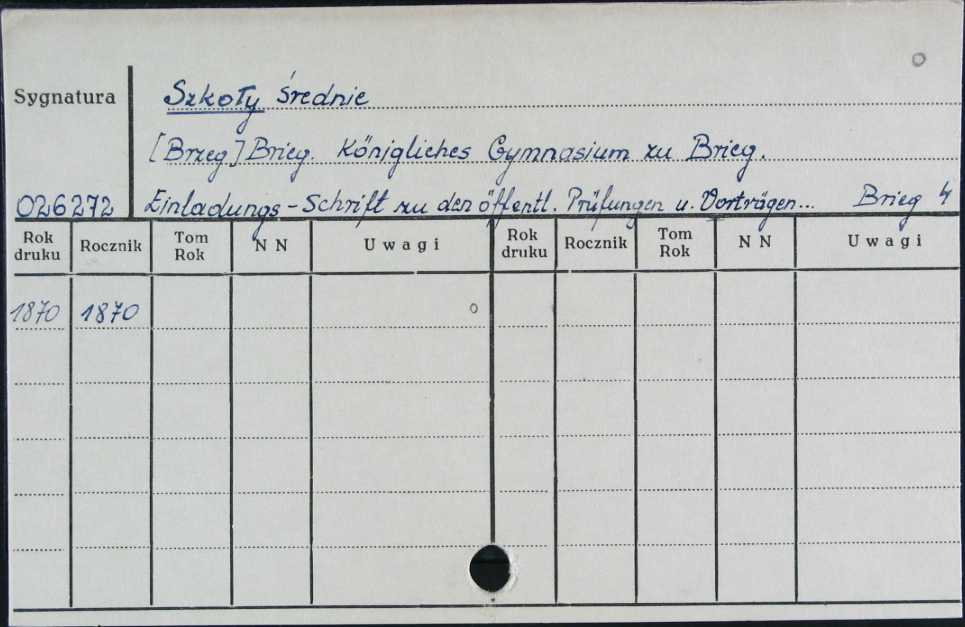 Sygnatura
Szkoły średnie
[Brzeg] Brieg. Königliches Gymnasium zu Brieg.
026272 Einladungs-Schrift zu den öffentl. Prüfungen u. Vorträgen... Brieg 4
Rok druku Rocznik Tom Rok N N Uwagi Rok druku Rocznik Tom Rok N N Uwagi
1870 1870